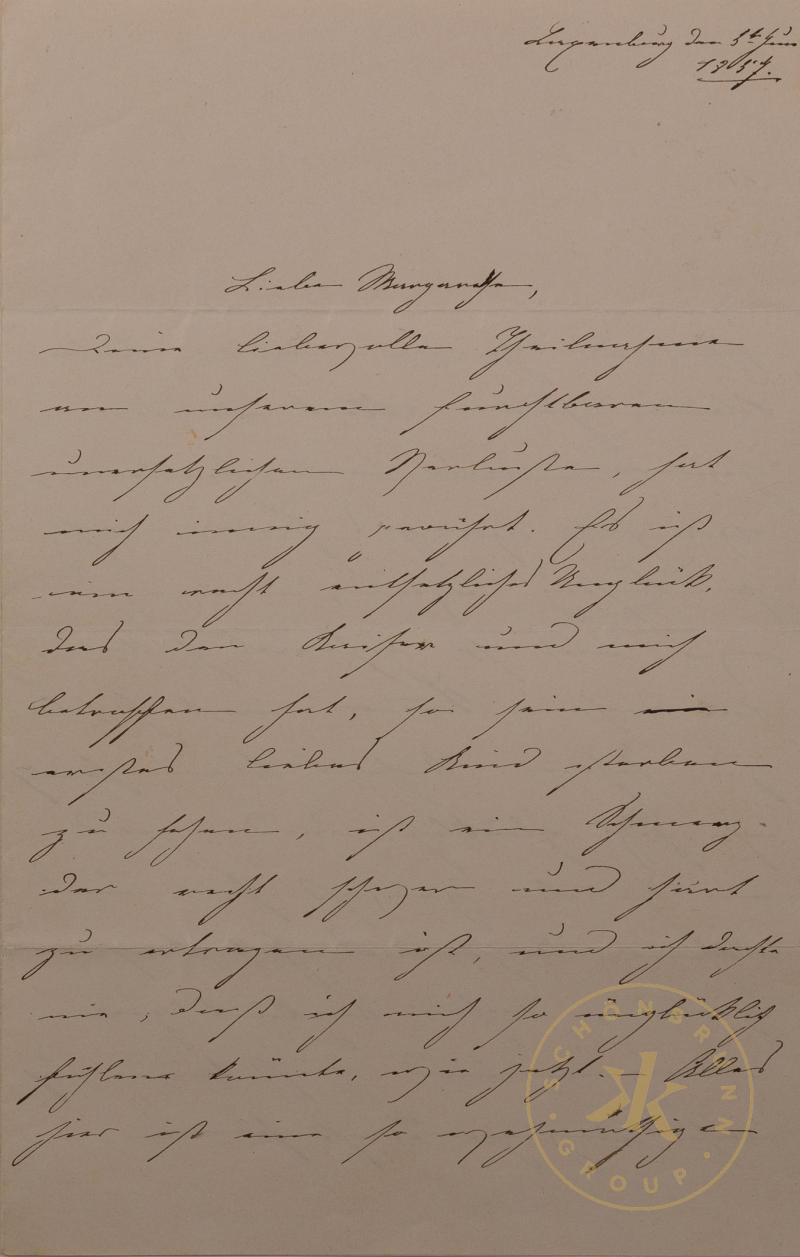 Laxenburg den 5t Juni
1857.
Liebe Margarethe,
Deine liebevolle Theilnahme
an unserem furchtbaren
unersetzlichen Verluste, hat
mich innig gerührt. Es ist
ein recht entsetzliches Unglück,
das den Kaiser und mich
betroffen hat, so sein
erstes liebes Kind sterben
zu sehen, ist ein Schmerz
der recht schwer und hart
zu ertragen ist, und ich dachte
nie, daß ich mich so unglücklich
fühlen könnte, wie jetzt. – Alles
hier ist eine so wehmüthige
SCHÖNBRUNN
GROUP